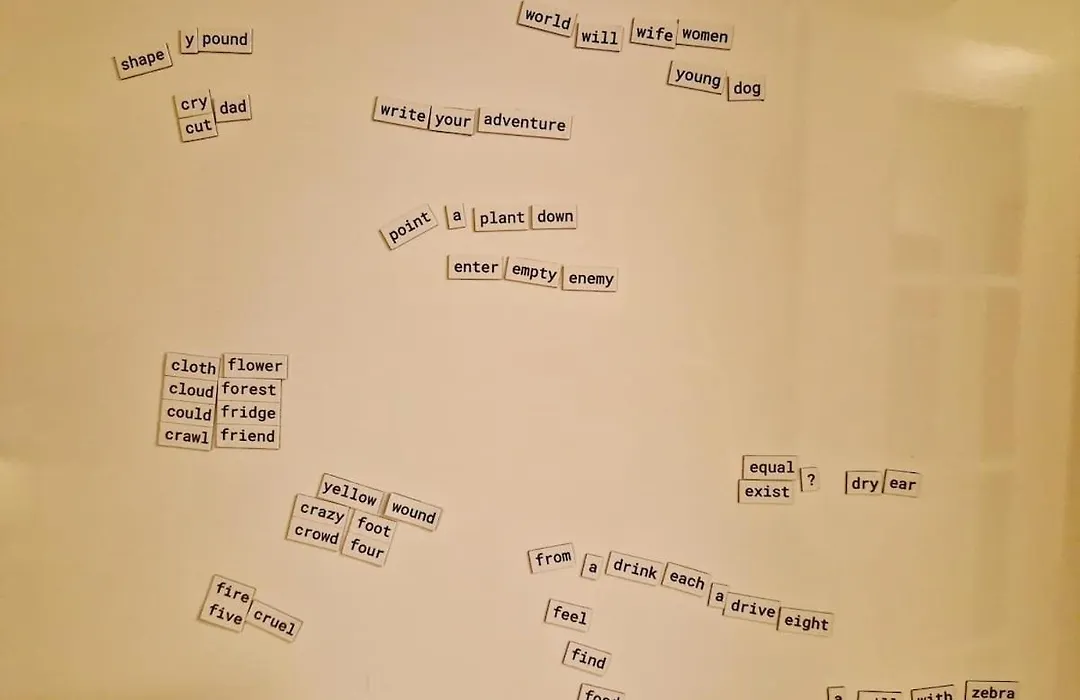 world will wife women
young dog
shape y pound
cry dad
cut
write your adventure
point a plant down
enter empty enemy
cloth flower
cloud forest
could fridge
crawl friend
equal ?
exist
dry ear
yellow wound
crazy foot
crowd four
from a drink each a drive eight
fire cruel
five
feel
find
a with zebra